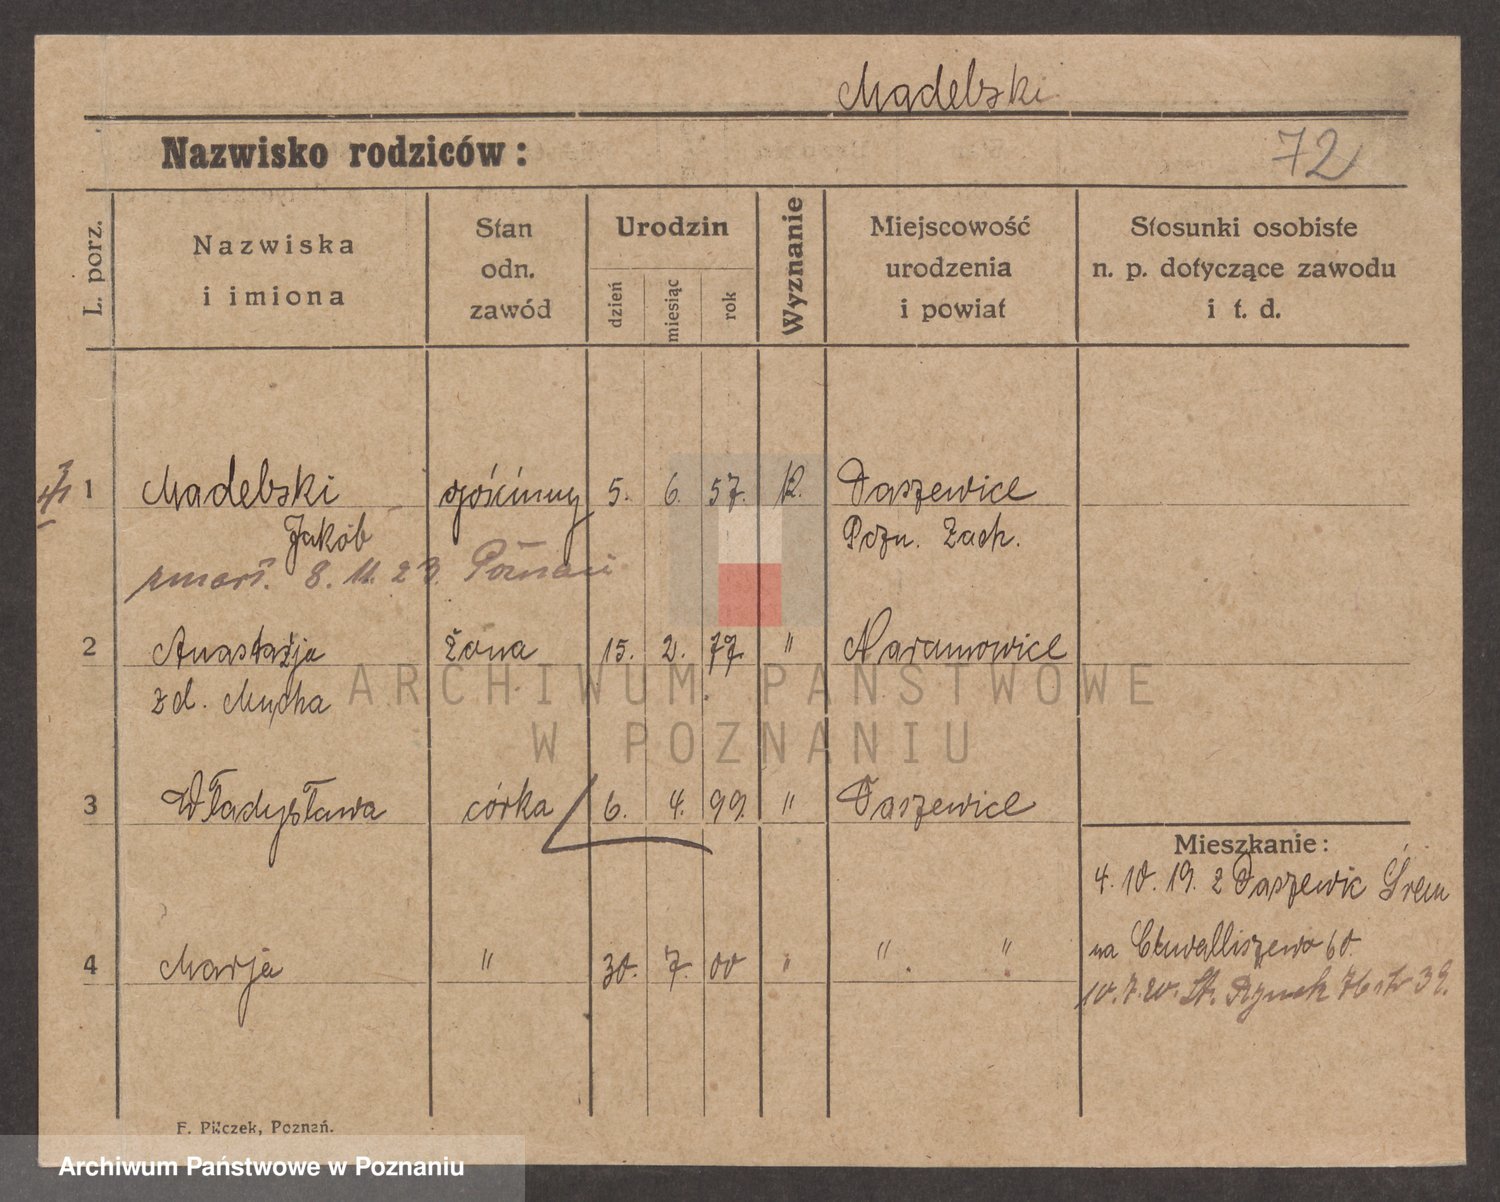 Madelski
Nazwisko rodziców:
72
L. porz.
Nazwiska
i imiona
Stan
odn.
zawód
Urodzin
dzień
miesiąc
rok
Wyznanie
Miejscowość
urodzenia
i powiat
Stosunki osobiste
n. p. dotyczące zawodu
i t. d.
1 Madelski gościnny 5. 6. 57. K. Daszewice
Jakób Pozn. Zach.
zmarł. 8. 11. 23. Poznań
2 Anastazja żona 15. 2. 77. " Naramowice
zd. Mucha
3 Władysława córka 6. 4. 99. " Daszewice
Mieszkanie:
4. 10. 19. z Daszewic Śrem
na Chwaliszewo 60.
4 Marja " 30. 7. 00 " " "
10. 7. 20. St. Rynek 76 str 39.
F. Pilczek, Poznań.
ARCHIWUM PAŃSTWOWE
W POZNANIU
Archiwum Państwowe w Poznaniu